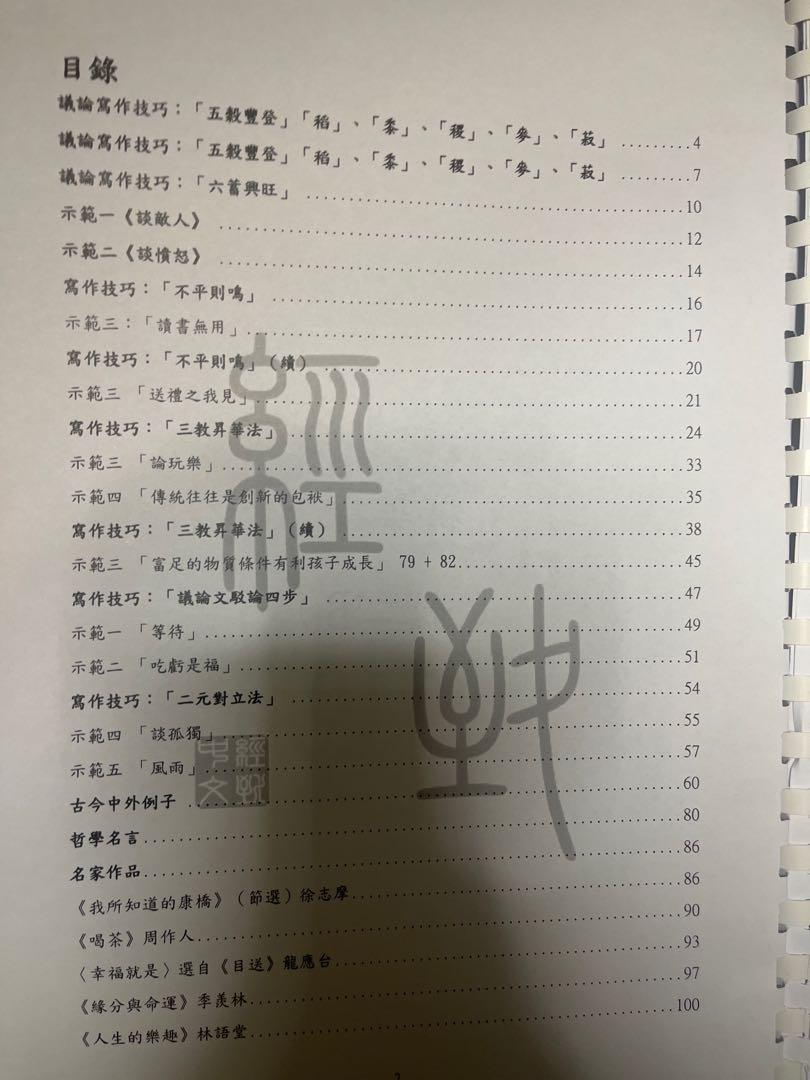 目錄
議論寫作技巧：「五穀豐登」「稻」、「黍」、「稷」、「麥」、「菽」 .........4
議論寫作技巧：「五穀豐登」「稻」、「黍」、「稷」、「麥」、「菽」 .........7
議論寫作技巧：「六畜興旺」 ..........10
示範一《談敵人》 ..........12
示範二《談憤怒》 ..........14
寫作技巧：「不平則鳴」 ..........16
示範三：「讀書無用」..........17
寫作技巧：「不平則鳴」（續） ..........20
示範三 「送禮之我見」..........21
寫作技巧：「三教昇華法」..........24
示範三 「論玩樂」..........33
示範四 「傳統往往是創新的包袱」..........35
寫作技巧：「三教昇華法」（續） ..........38
示範三 「富足的物質條件有利孩子成長」 79 + 82..........45
寫作技巧：「議論文駁論四步」 ..........47
示範一 「等待」..........49
示範二 「吃虧是福」..........51
寫作技巧：「二元對立法」 ..........54
示範四 「談孤獨」..........55
示範五 「風雨」..........57
古今中外例子 ..........60
哲學名言..........80
名家作品..........86
《我所知道的康橋》（節選）徐志摩..........86
《喝茶》周作人..........90
〈幸福就是〉選自《目送》龍應台..........93
《緣分與命運》季羨林..........97
《人生的樂趣》林語堂..........100
經